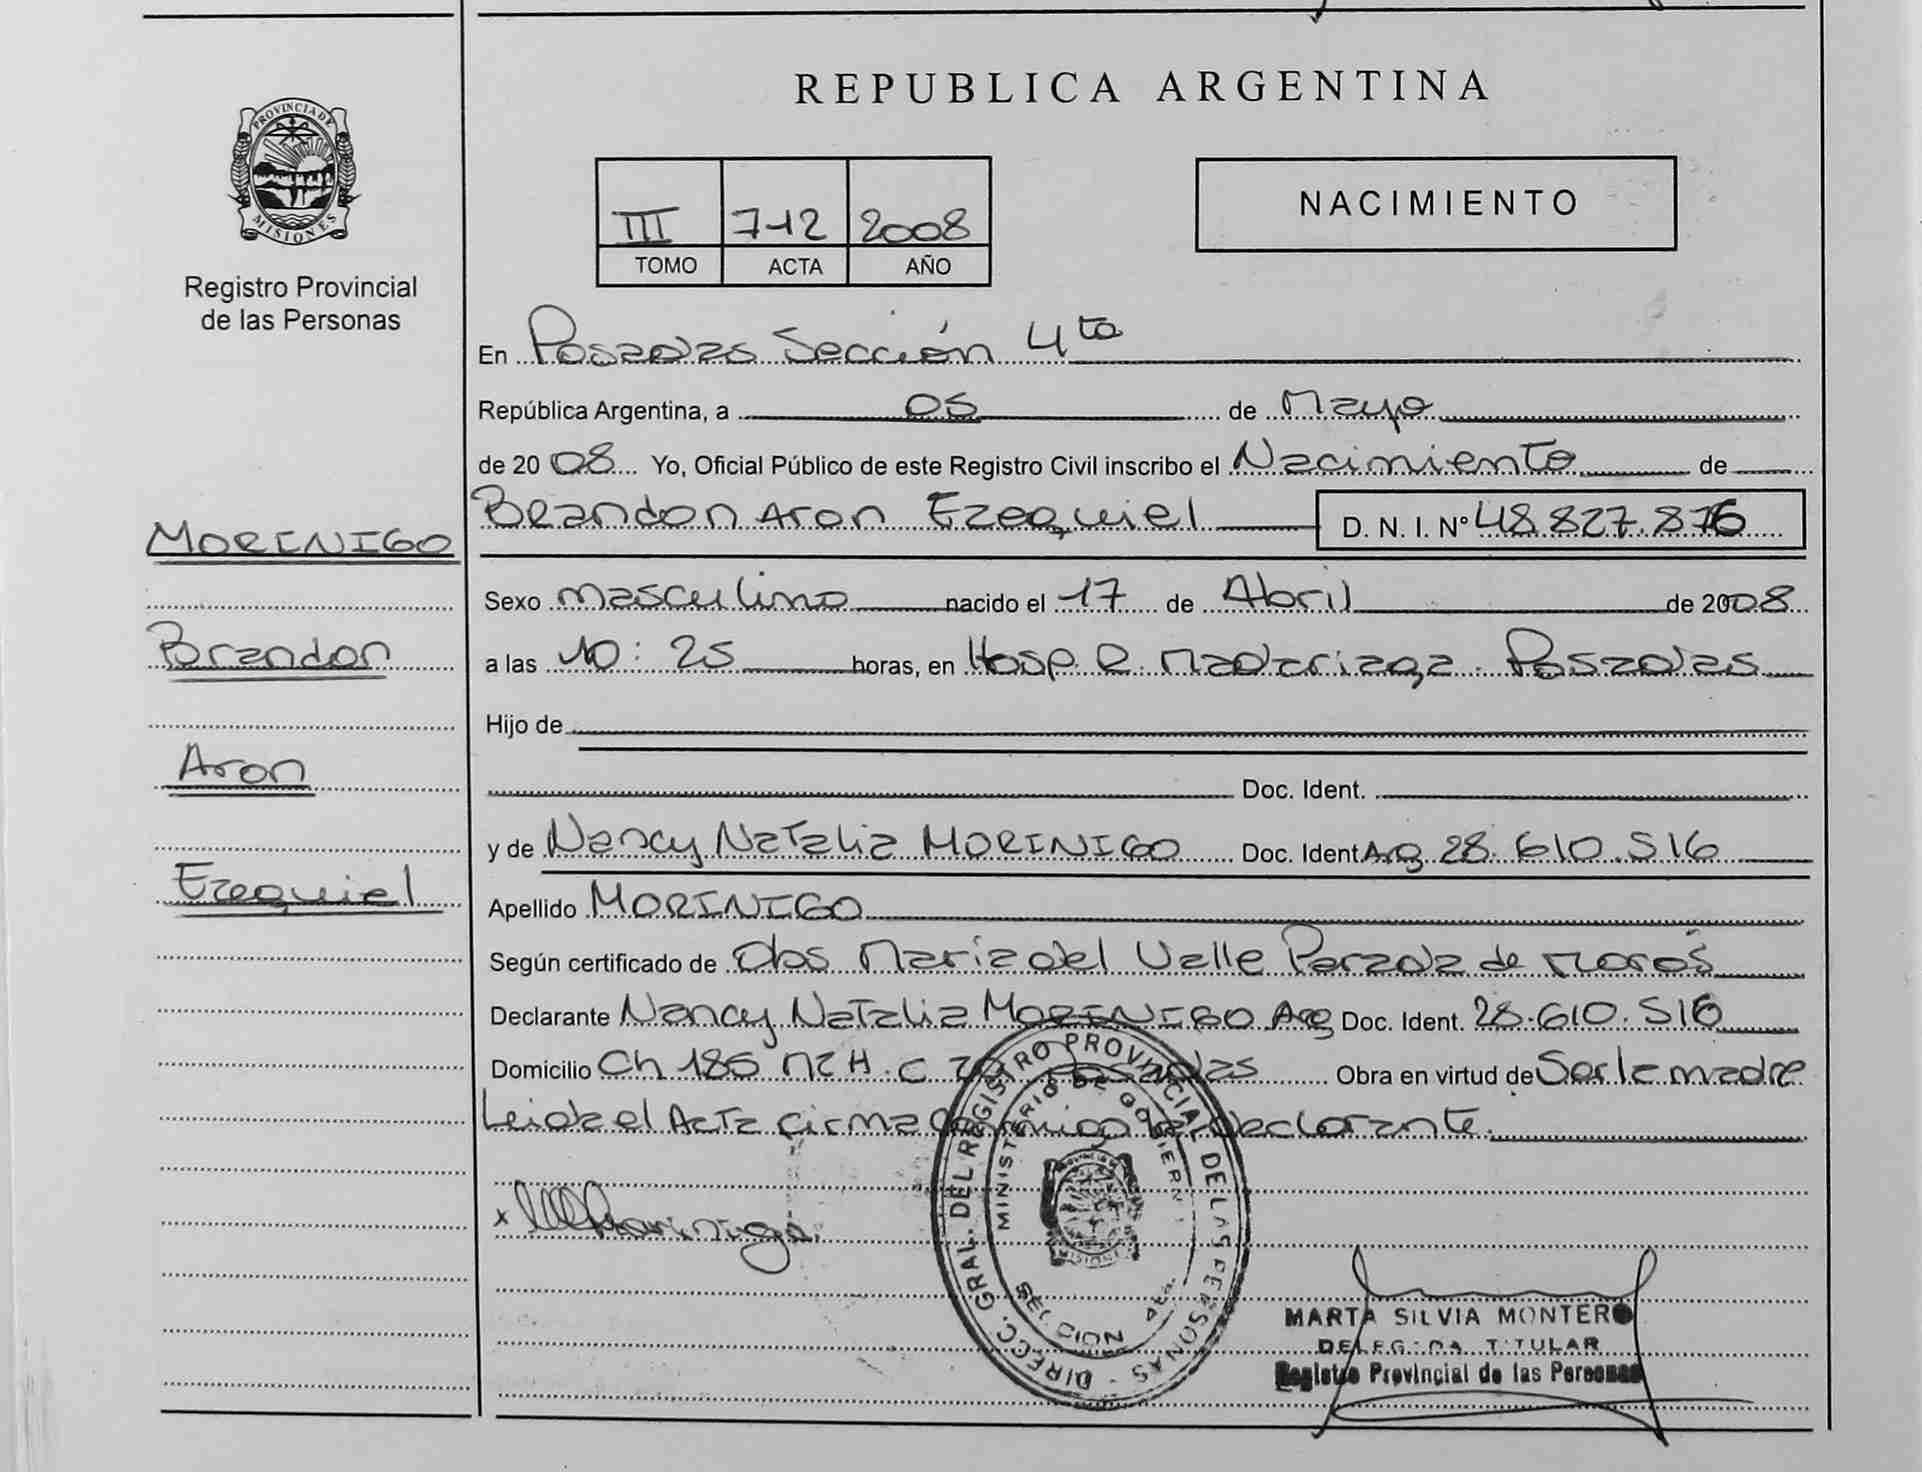 REPUBLICA ARGENTINA
PROVINCIA DE MISIONES
Registro Provincial
de las Personas
III 712 2008
TOMO ACTA AÑO
NACIMIENTO
En Posadas Sección 4ta
República Argentina, a 05 de Mayo
de 2008 Yo, Oficial Público de este Registro Civil inscribo el Nacimiento de
Brandon Aron Ezequiel D. N. I. Nº 48.827.876
MORINIGO
Brandon
Aron
Ezequiel
Sexo masculino nacido el 17 de Abril de 2008
a las 10:25 horas, en Hosp. R. Madariaga. Posadas
Hijo de
Doc. Ident.
y de Nancy Natalia MORINIGO Doc. Ident Arg 28.610.516
Apellido MORINIGO
Según certificado de Obs Maria del Valle Parada de
Declarante Nancy Natalia MORINIGO Arg Doc. Ident. 28.610.516
Domicilio Ch 185 MZ H. C Posadas Obra en virtud de Ser la madre
Leida el Acta firma conmigo la declarante.
x Morinigo
DIRECC. GRAL. DEL REGISTRO PROVINCIAL DE LAS PERSONAS
MINISTERIO DE GOBIERNO
SECCION 4ta.
MARTA SILVIA MONTERO
DELEGADA TITULAR
Registro Provincial de las Personas